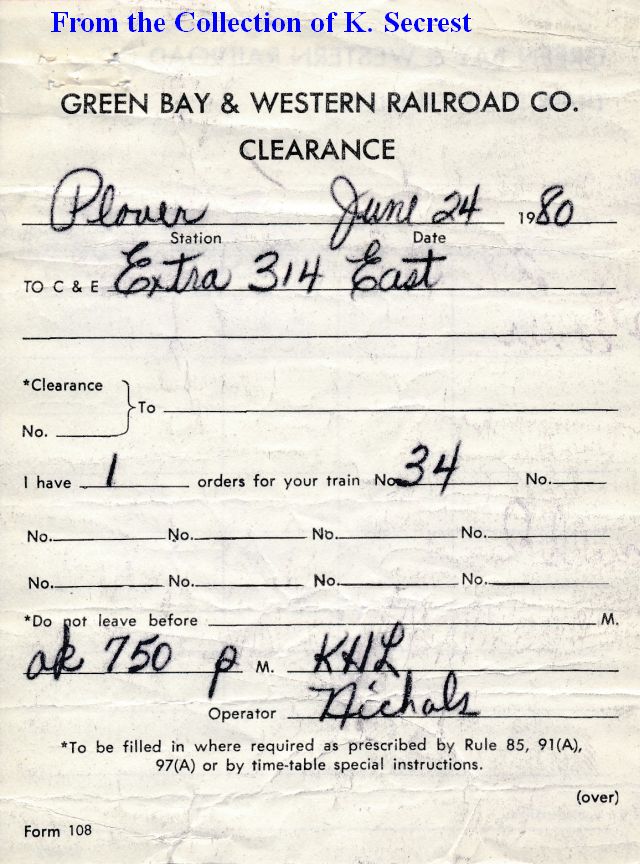 From the Collection of K. Secrest
GREEN BAY & WESTERN RAILROAD CO.
CLEARANCE
Plover June 24 1980
Station Date
TO C & E Extra 314 East
*Clearance
To
No.
I have 1 orders for your train No. 34 No.
No. No. No. No.
No. No. No. No.
*Do not leave before M.
ok 750 p M. KHL
Operator Nichols
*To be filled in where required as prescribed by Rule 85, 91(A),
97(A) or by time-table special instructions.
(over)
Form 108